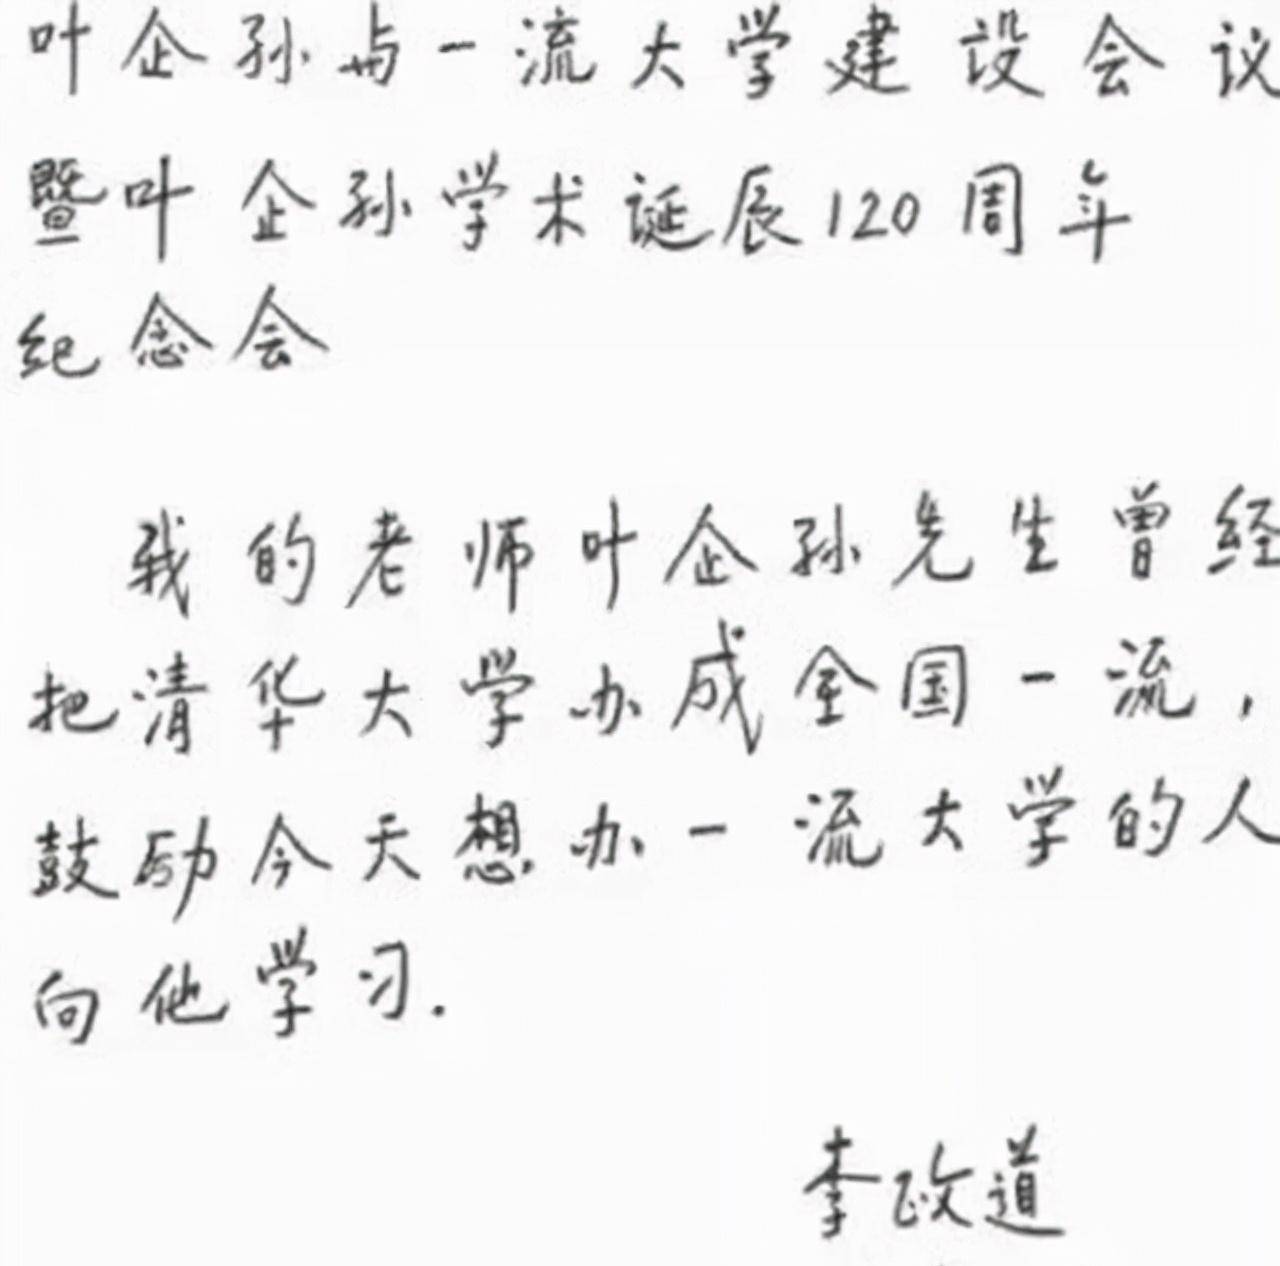 叶企孙与一流大学建设会议
暨叶企孙学术诞辰120周年
纪念会
我的老师叶企孙先生曾经
把清华大学办成全国一流,
鼓励今天想办一流大学的人
向他学习.
李政道